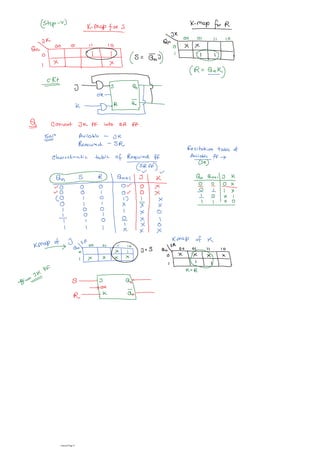 (Step-4)
K-map for S
K-map for R
JK
Qn
00 01 11 10
0
1
1 1
X X
(S = Q̅nJ)
JK
Qn
00 01 11 10
0 X X
1 1 1
(R = QnK)
CKt
J
K
S Qn
R Q̅n
Q. Convert JK FF into SR FF
Solⁿ Avilable - JK
Required - SR
Characteristic table of Required FF
(SR FF)
Excitation table of
Avilable FF →
(JK)
Qn S R Qn+1 J K
0 0 0 0 0 X
0 0 1 0 0 X
0 1 0 1 1 X
0 1 1 X X X
1 0 0 1 X 0
1 0 1 0 X 1
1 1 0 1 X 0
1 1 1 X X X
Qn Qn+1 J K
0 0 0 X
0 1 1 X
1 0 X 1
1 1 X 0
Kmap of J
Kmap of K
SR
Qn
00 01 11 10
0 X 1
1 X X X X
J = S
SR
Qn
00 01 11 10
0 X X X X
1 1 X
K = R
JK FF
S
R
J Qn
K Q̅n